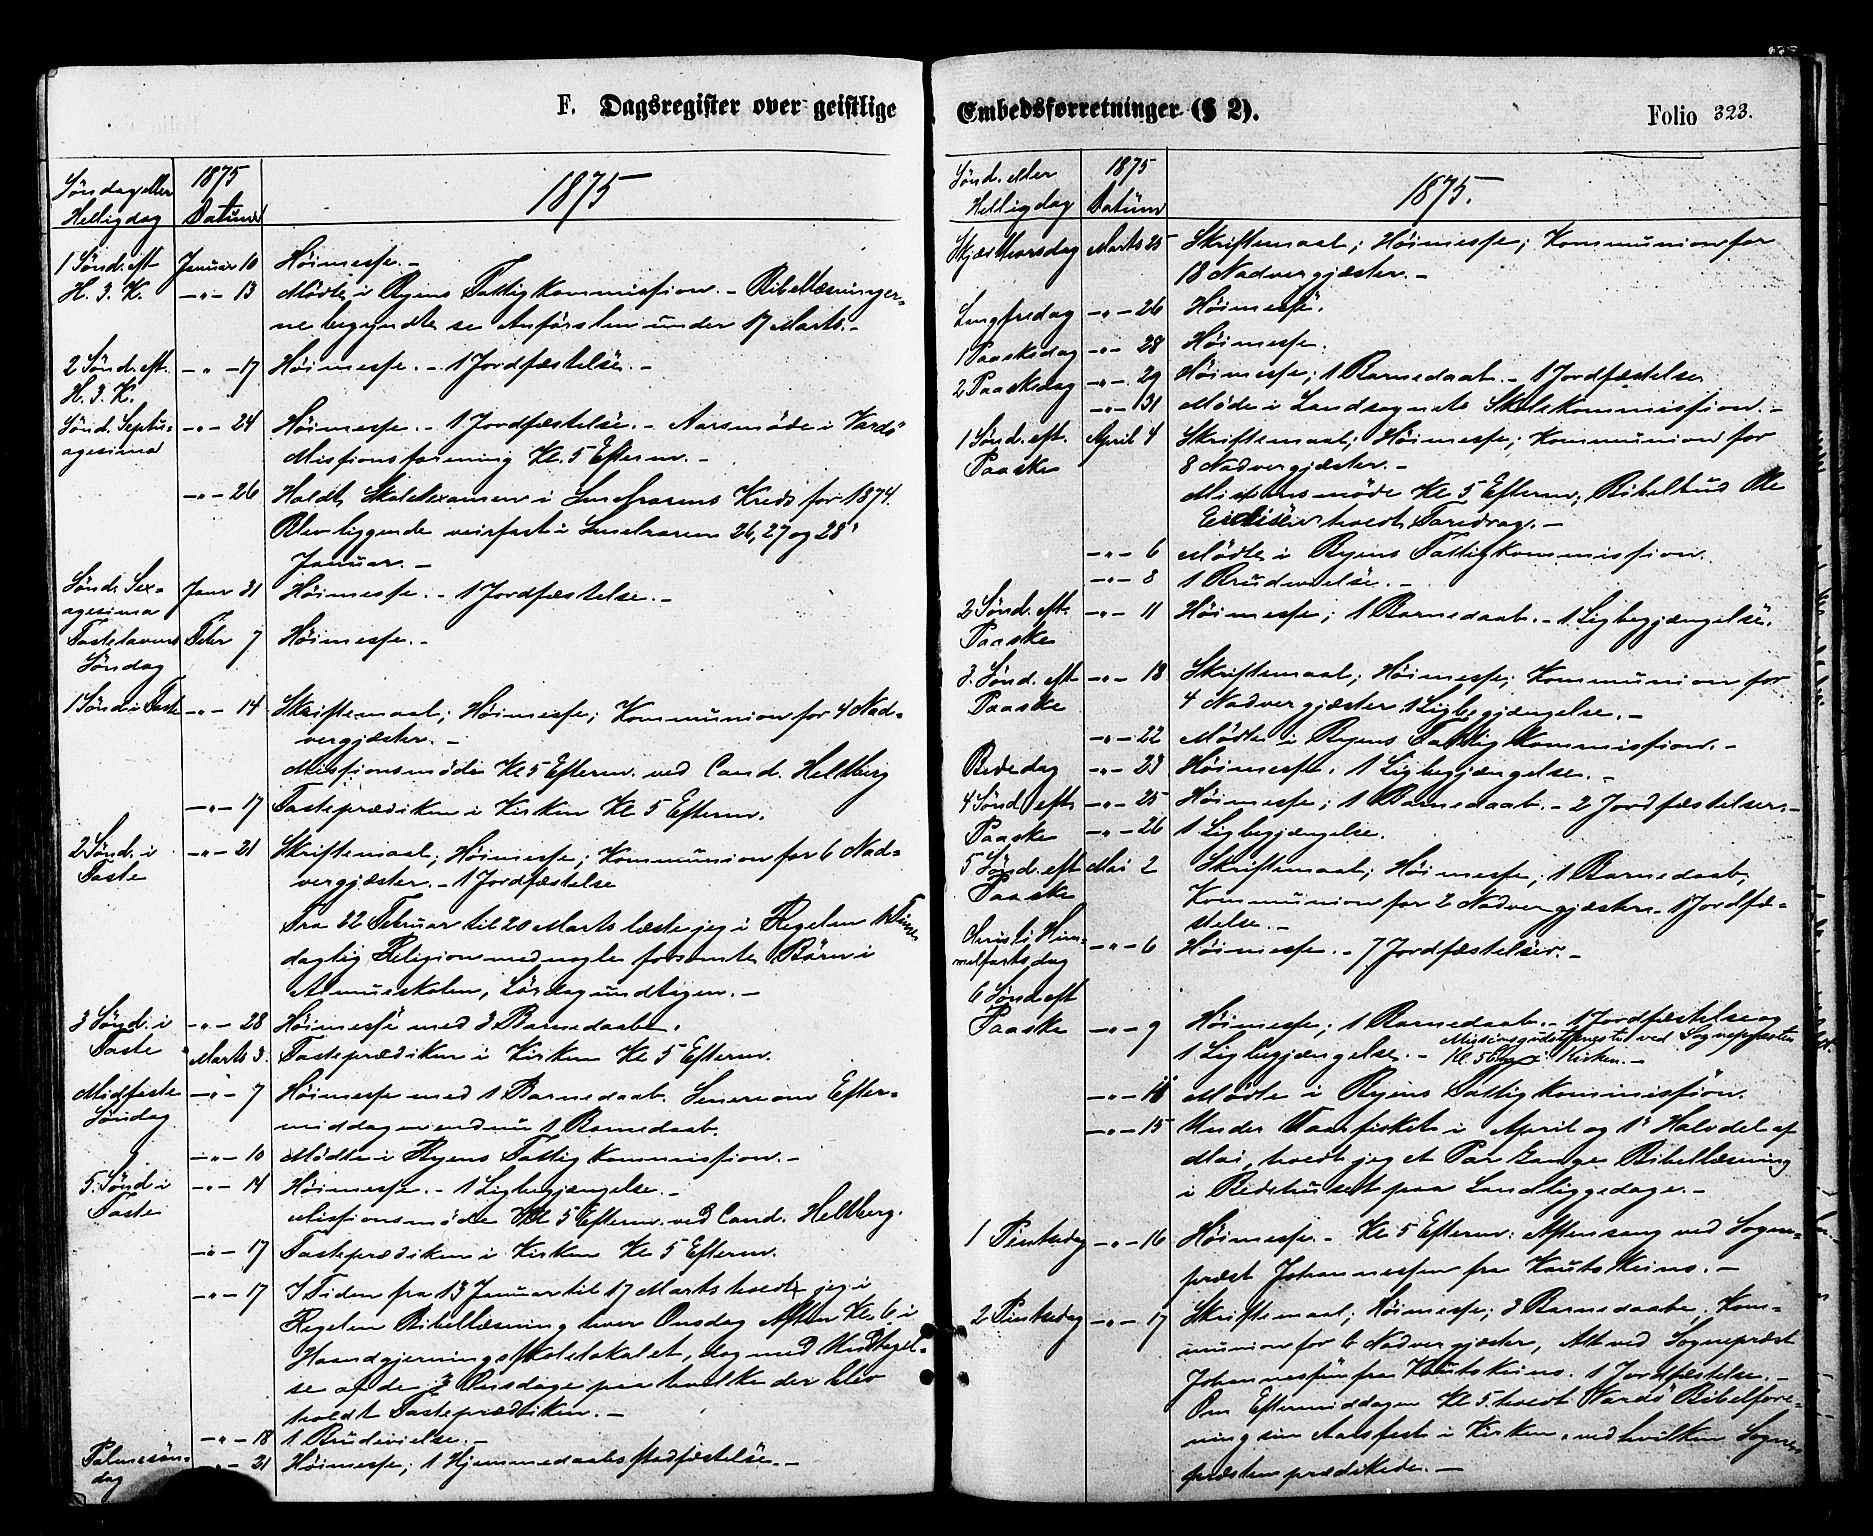 F. Dagsregister over geistlige
Søndag eller Helligdag
1875 Datum
1875
1 Sønd. eft. Januar 10 Høimesse. –
H. 3. K. –"– 13 Mødte i Byens Fattigkommission. – Bibellæsninger-
ne begyndte se Anførslen under 17 Marts. –
2 Sønd. eft. –"– 17 Høimesse. – 1 Jordfæstelse. –
H. 3. K.
Sønd. Septu- –"– 24 Høimesse. – 1 Jordfæstelse. – Aarsmøde i Vardø
agesima Missionsforening Kl. 5 Efterm. –
–"– 26 Holdt Skoleexamen i Kreds for 1874.
Blev liggende veirfast i 26, 27 og 28
Januar. –
Sønd. Sex- Janr 31 Høimesse. – 1 Jordfæstelse. –
agesima
Fastelavens Febr 7 Høimesse. –
Søndag
1 Sønd i Faste –"– 14 Skriftemaal; Høimesse; Kommunion for 4 Nad-
vergjæster. –
Missionsmøde Kl 5 Efterm. ved Cand. Heltberg
–"– 17 Fasteprædiken i Kirken Kl 5 Efterm.
2 Sønd. i –"– 21 Skriftemaal; Høimesse; Kommunion for 6 Nad-
Faste vergjæster. – 1 Jordfæstelse
Fra 22 Februar til 20 Marts læste jeg i Regelen 1 Time
daglig Religion med nogle forsømte Børn i
Almueskolen, Lørdag undtagen. –
3 Sønd. i –"– 28 Høimesse med 3 Barnedaab.
Faste Marts 3. Fasteprædiken i Kirken Kl 5 Efterm.
Midfaste –"– 7 Høimesse med 1 Barnedaab. Senere om Efter-
Søndag middagen endnu 1 Barnedaab.
–"– 10 Mødte i Byens Fattigkommission. –
5. Sønd i –"– 14 Høimesse. – 1 Ligbegjængelse. –
Faste Missionsmøde Kl 5 Efterm. ved Cand. Heltberg.
–"– 17 Fasteprædiken i Kirken Kl 5 Efterm.
–"– 17 I Tiden fra 13 Januar til 17 Marts holdt jeg i
Regelen Bibellæsning hver Onsdag Aften Kl. 6 i
Haandgjerningsskolelokalet, dog med Undtagel-
se af de 3 Onsdage paa hvilke der blev
holdt Fasteprædiken. –
–"– 18 1 Brudevielse. –
Palmesøn- –"– 21 Høimesse; 1 Hjemmedaabsstadfæstelse. –
dag
Embedsforretninger (§ 2).
Folio 323.
Sønd. eller Helligdag
1875 Datum
1875.
Skjærthorsdag Marts 25 Skriftemaal; Høimesse; Kommunion for
18 Nadvergjæster. –
Langfredag –"– 26 Høimesse.
1 Paaskedag –"– 28 Høimesse.
2 Paaskedag –"– 29 Høimesse; 1 Barnedaab. – 1 Jordfæstelse
–"– 31 Møde i Landsognets Skolekommission. –
1 Sønd. eft. April 4 Skriftemaal; Høimesse; Kommunion for
Paaske 8 Nadvergjæster. –
Missionsmøde Kl 5 Efterm; Bibelbud Ole
holdt Foredrag. –
–"– 6 Mødte i Byens Fattigkommission.
–"– 8 1 Brudevielse. –
2 Sønd. eft. –"– 11 Høimesse; 1 Barnedaab. – 1 Ligbegjængelse.
Paaske
3. Sønd. eft –"– 18 Skriftemaal; Høimesse; Kommunion for
Paaske 4 Nadvergjæster 1 Ligbegjængelse. –
–"– 22 Mødte i Byens Fattigkommission. –
Bededag –"– 23 Høimesse. 1 Ligbegjængelse. –
4 Sønd. eft –"– 25 Høimesse; 1 Barnedaab. – 2 Jordfæstelser. –
Paaske –"– 26 1 Ligbegjængelse.
5 Sønd. eft Mai 2 Skriftemaal; Høimesse; 1 Barnedaab;
Paaske Kommunion for 2 Nadvergjæster. – 1 Jordfæ-
stelse. –
Christi Him- –"– 6 Høimesse. – 7 Jordfæstelser. –
melfartsdag
6 Sønd eft
Paaske –"– 9 Høimesse; 1 Barnedaab. – 1 Jordfæstelse og
1 Ligbegjængelse. – Missionsgudstjeneste ved Sognepresten
Kl. 5 i Kirken. –
–"– 11 Mødte i Byens Fattigkommission.
–"– 15 Under Vaarfisket i April og 1e Halvdel af
Mai, holdt jeg et Par Gange Bibellæsning
i Bedehuset paa Landliggedage. –
1 Pintsedag –"– 16 Høimesse. – Kl 5 Efterm: Aftensang ved Sogne-
præst Johannessen fra Kautokeino. –
2 Pintsedag –"– 17 Skriftemaal; Høimesse; 3 Barnedaab; Kom-
munion for 6 Nadvergjæster, Alt ved Sognepræst
Johannessen fra Kautokeino. 1 Jordfæstelse. –
Om Eftermiddagen Kl 5. holdt Vardø Bibelfore-
ning sin Aarsfest i Kirken, ved hvilken Sogne-
præsten prædikede. –